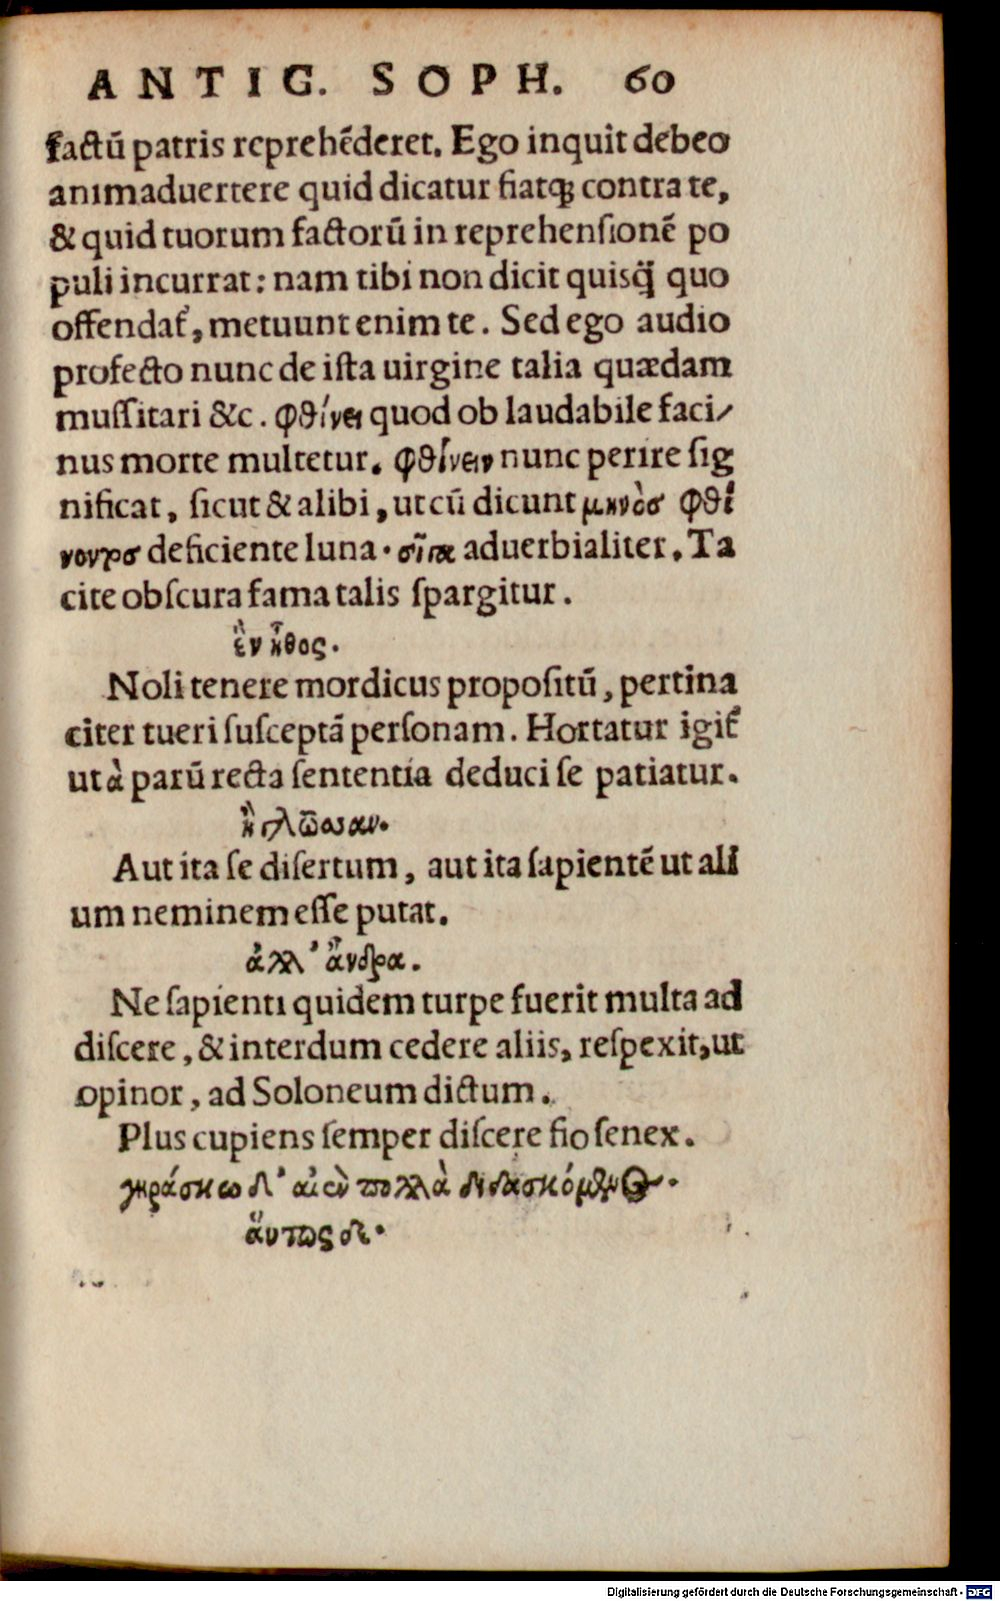 ANTIG. SOPH. 60
factū patris reprehēderet. Ego inquit debeo
animaduertere quid dicatur fiatq́ꝫ contra te,
& quid tuorum factorū in reprehensionē po
puli incurrat: nam tibi non dicit quisq̄ quo
offendat᷑, metuunt enim te. Sed ego audio
profecto nunc de ista uirgine talia quædam
mussitari &c. φθίνει quod ob laudabile faci⸗
nus morte multetur. φθίνειν nunc perire sig
nificat, sicut & alibi, ut cū dicunt μηνὸσ φθί
νοντοσ deficiente luna. σῖγα aduerbialiter. Ta
cite obscura fama talis spargitur.
ἓν ἦθος.
Noli tenere mordicus propositū, pertina
citer tueri susceptā personam. Hortatur igit᷑
ut à parū recta sententia deduci se patiatur.
ἢ γλῶσσαν.
Aut ita se disertum, aut ita sapientē ut ali
um neminem esse putat.
ἀλλ' ἄνδρα.
Ne sapienti quidem turpe fuerit multa ad
discere, & interdum cedere aliis, respexit, ut
opinor, ad Soloneum dictum.
Plus cupiens semper discere fio senex.
γηράσκω δ' αἰεὶ πολλὰ διδασκόμενος.
ἄυτως δὲ.
Digitalisierung gefördert durch die Deutsche Forschungsgemeinschaft - DFG